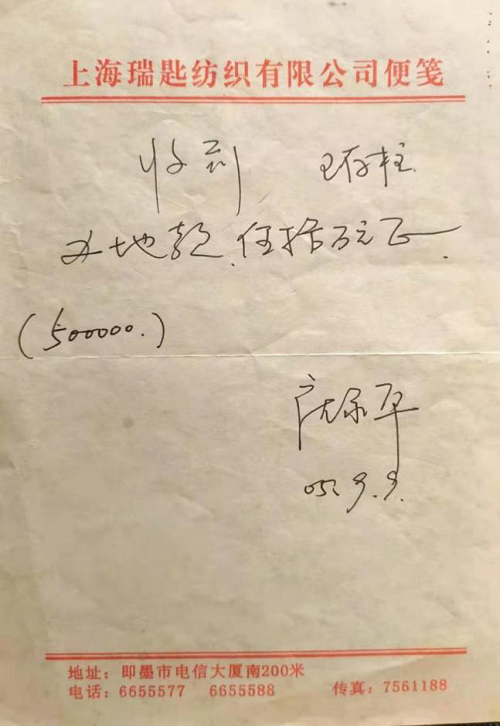 上海瑞匙纺织有限公司便笺
收到 王存柱
办地款伍拾万元正
(500000.)
05. 9. 9.
地址：即墨市电信大厦南200米
电话：6655577 6655588 传真：7561188